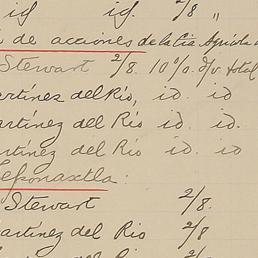 id id 2/8 "
de acciones de la Cía Agrícola
Stewart 2/8. 10%. s/v. total
artínez del Río, id. id
artínez del Río id. id.
artínez del Río id. id
Teponaxtla.
Stewart 2/8.
artinez del Rio 2/8